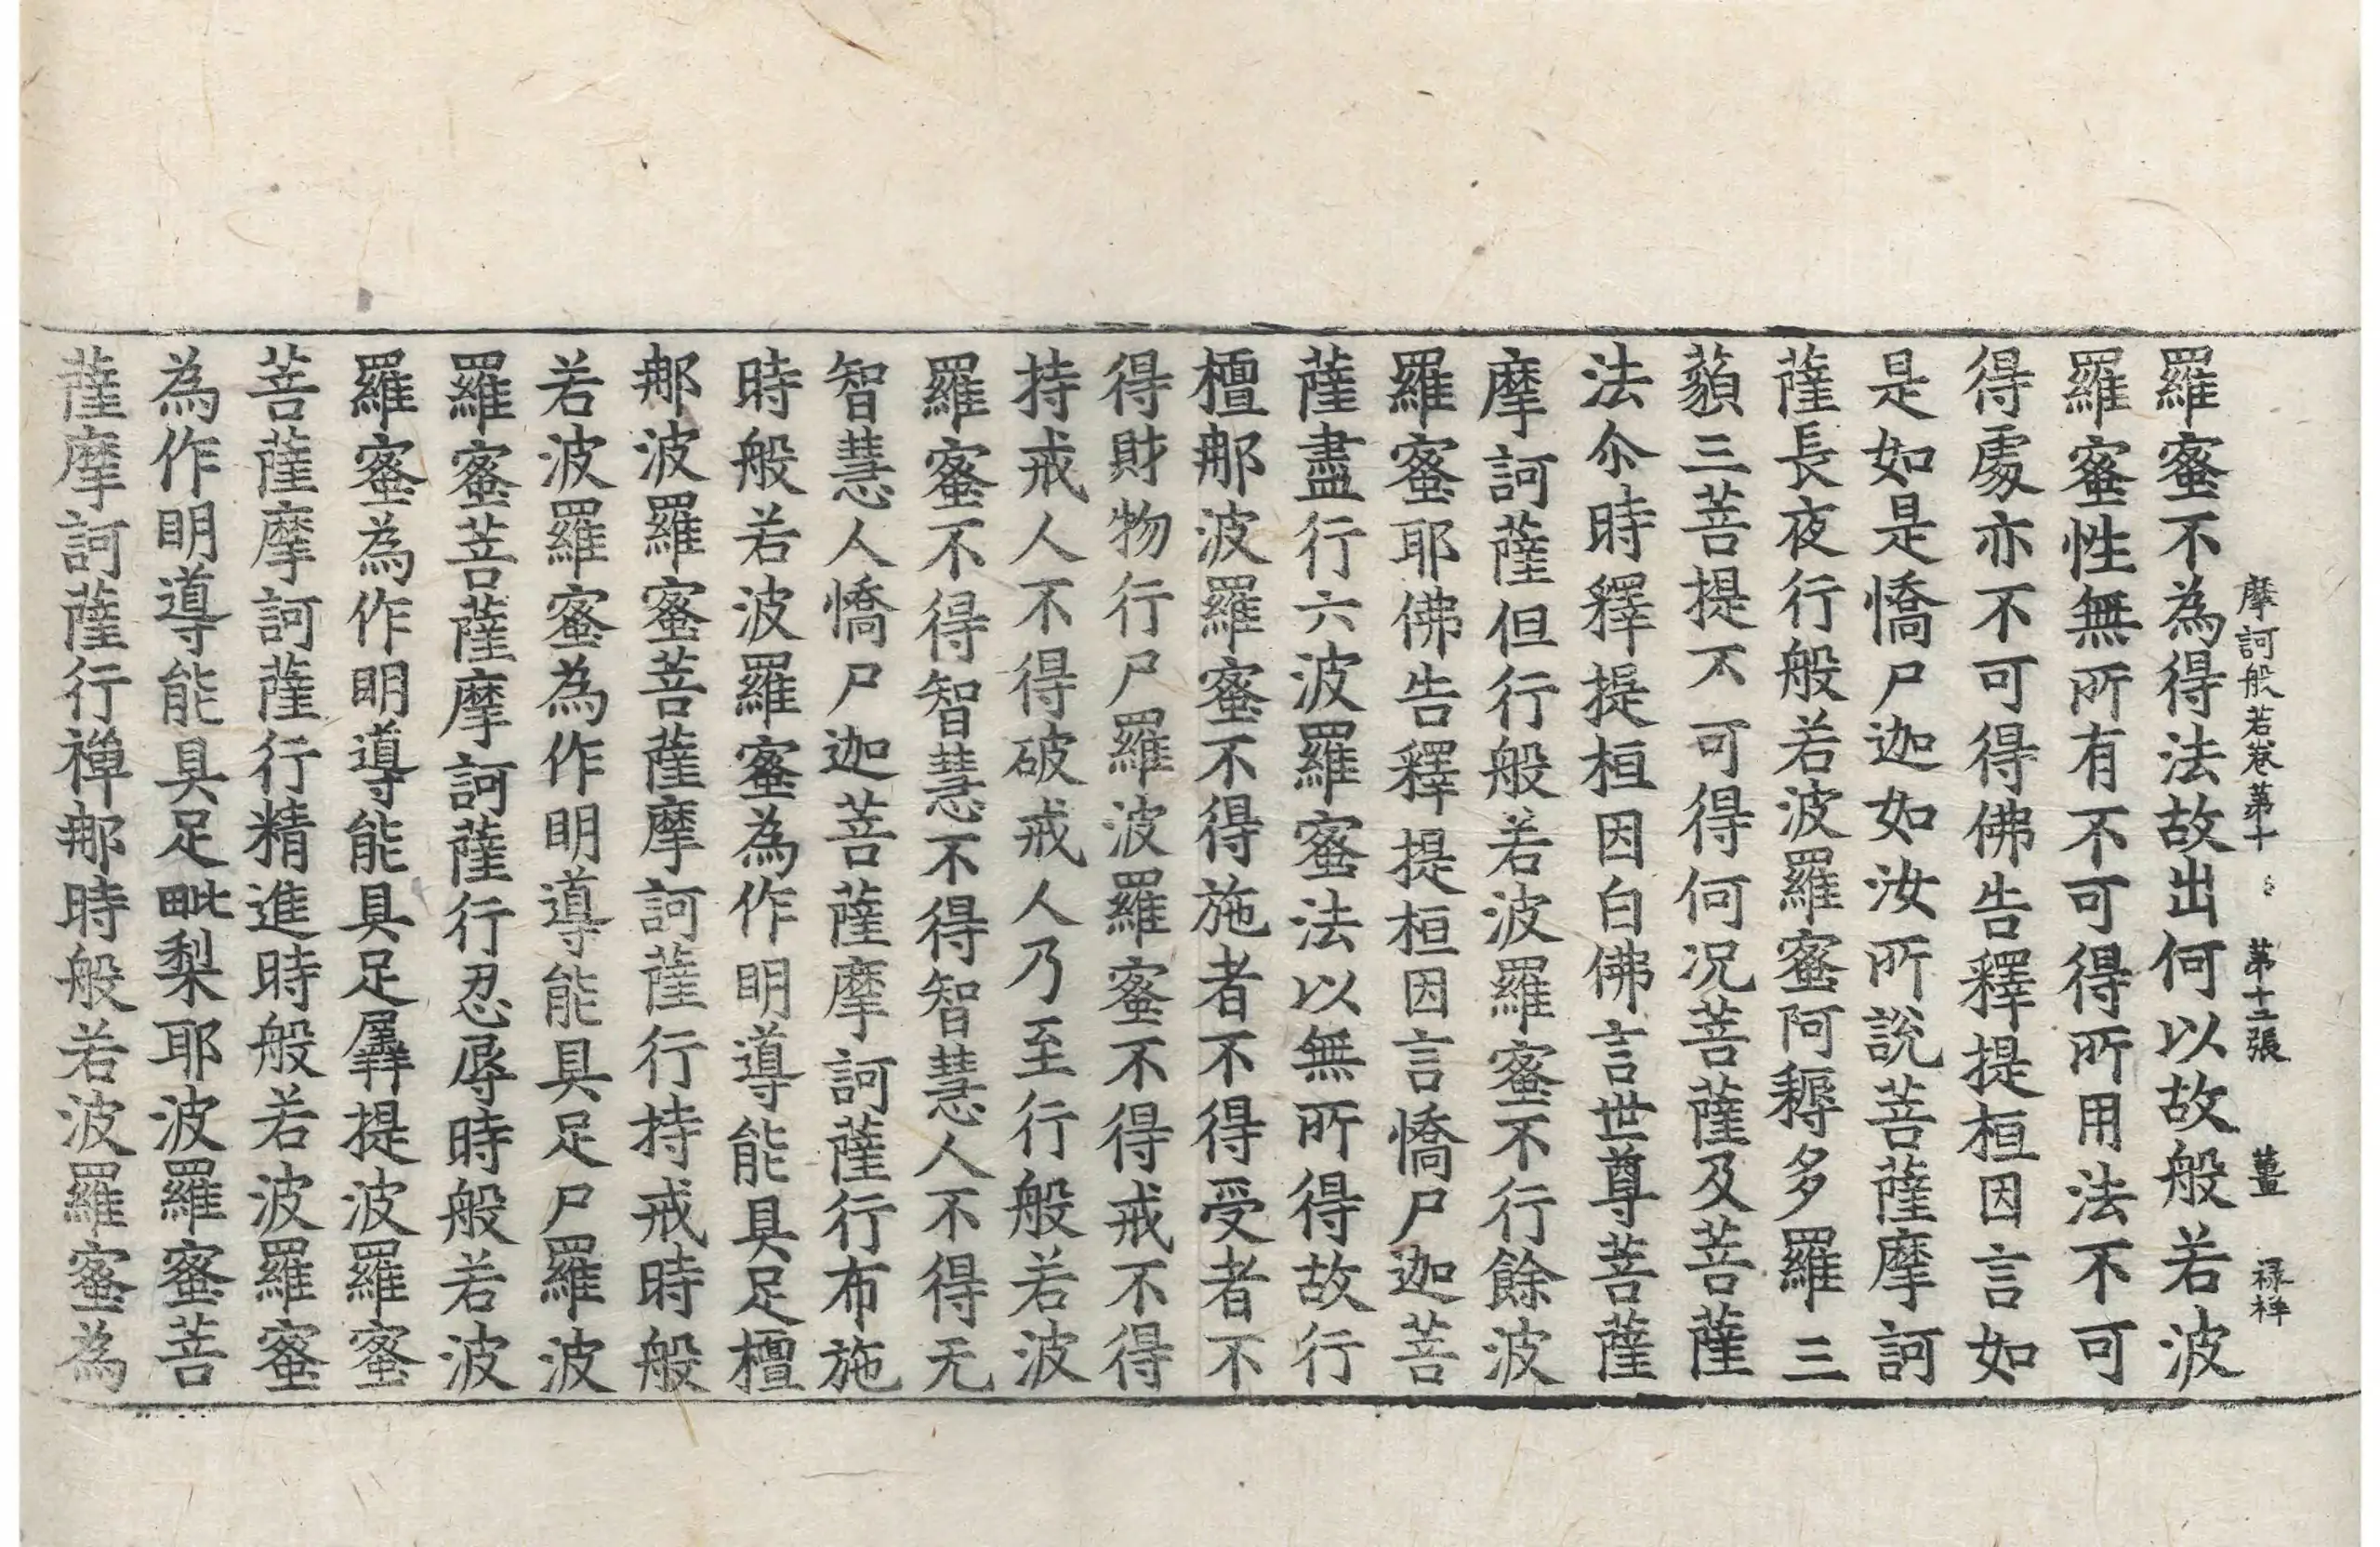 摩訶般若卷第十 第十二張 薑 祿祥
羅蜜不為得法故出何以故般若波
羅蜜性無所有不可得所用法不可
得處亦不可得佛告釋提桓因言如
是如是憍尸迦如汝所說菩薩摩訶
薩長夜行般若波羅蜜阿耨多羅三
藐三菩提不可得何况菩薩及菩薩
法尒時釋提桓因白佛言世尊菩薩
摩訶薩但行般若波羅蜜不行餘波
羅蜜耶佛告釋提桓因言憍尸迦菩
薩盡行六波羅蜜法以無所得故行
檀那波羅蜜不得施者不得受者不
得財物行尸羅波羅蜜不得戒不得
持戒人不得破戒人乃至行般若波
羅蜜不得智慧不得智慧人不得无
智慧人憍尸迦菩薩摩訶薩行布施
時般若波羅蜜為作明導能具足檀
那波羅蜜菩薩摩訶薩行持戒時般
若波羅蜜為作明導能具足尸羅波
羅蜜菩薩摩訶薩行忍辱時般若波
羅蜜為作明導能具足羼提波羅蜜
菩薩摩訶薩行精進時般若波羅蜜
為作明導能具足毗梨耶波羅蜜菩
薩摩訶薩行禪那時般若波羅蜜為